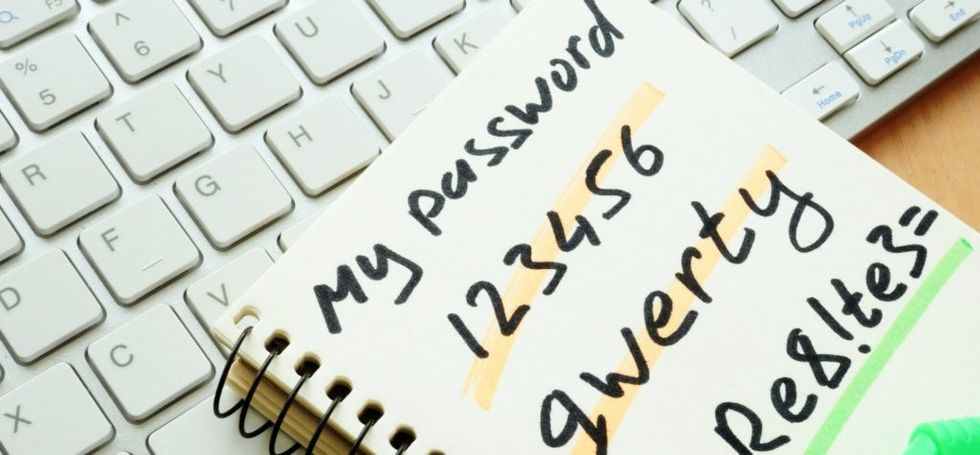 My password
123456
qwerty
Re8!te3=
^
6
%
5
U
Y
T
R
K
J
H
G
F
D
V
C
X
?
/
PgUp
PgDn
Home
End